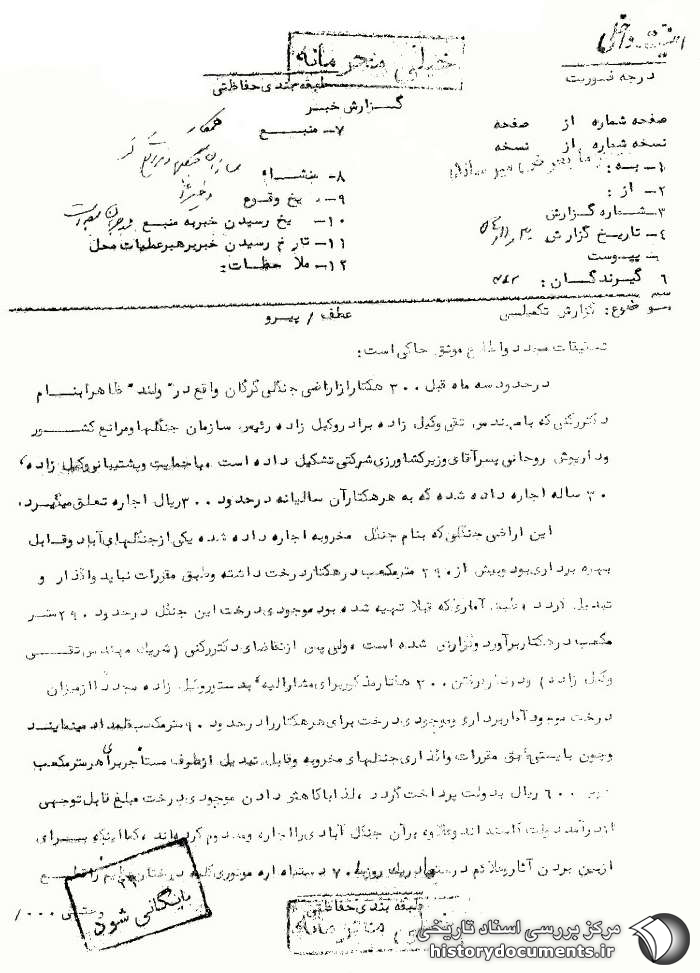 خیلی محرمانه
طبقه بندی حفاظتی
درجه فوریت
گزارش خبر
صفحه شماره از صفحه
نسخه شماره از نسخه
۱- به :
۲- از :
۳- شماره گزارش
۴- تاریخ گزارش
پیوست
۶ گیرندگان :
۷- منبع همکار
۸- منشاء
۹- یخ وقوع
۱۰- یخ رسیدن خبر به منبع
۱۱- تاریخ رسیدن خبر برهبر عملیات محل
۱۲- ملاحظات :
موضوع : گزارش تکمیلی
عطف / پیرو
تحقیقات مجدد و اطلاع موثق حاکی است :
در حدود سه ماه قبل ۳۰۰ هکتار از اراضی جنگلی گرگان واقع در " ولند " ظاهرا بنام
دکتر رکنی که با مهندس تقی وکیل زاده برادر وکیل زاده رئیس سازمان جنگلها و مراتع کشور
و داریوش روحانی پسر آقای وزیر کشاورزی شرکتی تشکیل داده است ، با حمایت و پشتیبانی وکیل زاده ،
۳۰ ساله اجاره داده شده که به هر هکتار آن سالیانه در حدود ۳۰۰ ریال اجاره تعلق میگیرد .
این اراضی جنگلی که بنام جنگل مخروبه اجاره داده شده یکی از جنگلهای آباد و قابل
بهره برداری بود و بیش از ۲۹۰ متر مکعب در هکتار درخت داشته و طبق مقررات نباید واگذار و
تبدیل گردد ، طبق آماری که قبلا تهیه شده بود موجودی درخت این جنگل در حدود ۲۹۰ متر
مکعب در هکتار برآورد و گزارش شده است ، ولی پس از تقاضای دکتر رکنی ( شریک مهندس تقی
وکیل زاده ) و در نظر گرفتن ۳۰۰ هکتار مذکور برای مشارالیه بدستور وکیل زاده مجددا از میزان
درخت موجود آمار برداری و موجودی درخت برای هر هکتار را در حدود ۹۰ متر مکعب قلمداد مینمایند
و چون بایستی طبق مقررات واگذاری جنگلهای مخروبه و قابل تبدیل از طرف مستأجر برای هر متر مکعب
۶۰۰ ریال بدولت پرداخت گردد ، لذا با کاهش دادن موجودی درخت مبلغ قابل توجهی
از درآمد دولت کاسته اند و علاوه بر آن جنگل آبادی را اجاره و معدوم کرده اند ، کما اینکه برای
از بین بردن آثار و علائم در ستها در یک روز با ۷۰ دستگاه اره موتوری کلیه درختان را قطع
۰۰۰/
بایگانی شود
طبقه بندی حفاظتی
خیلی محرمانه
مرکز بررسی اسناد تاریخی
historydocuments.ir